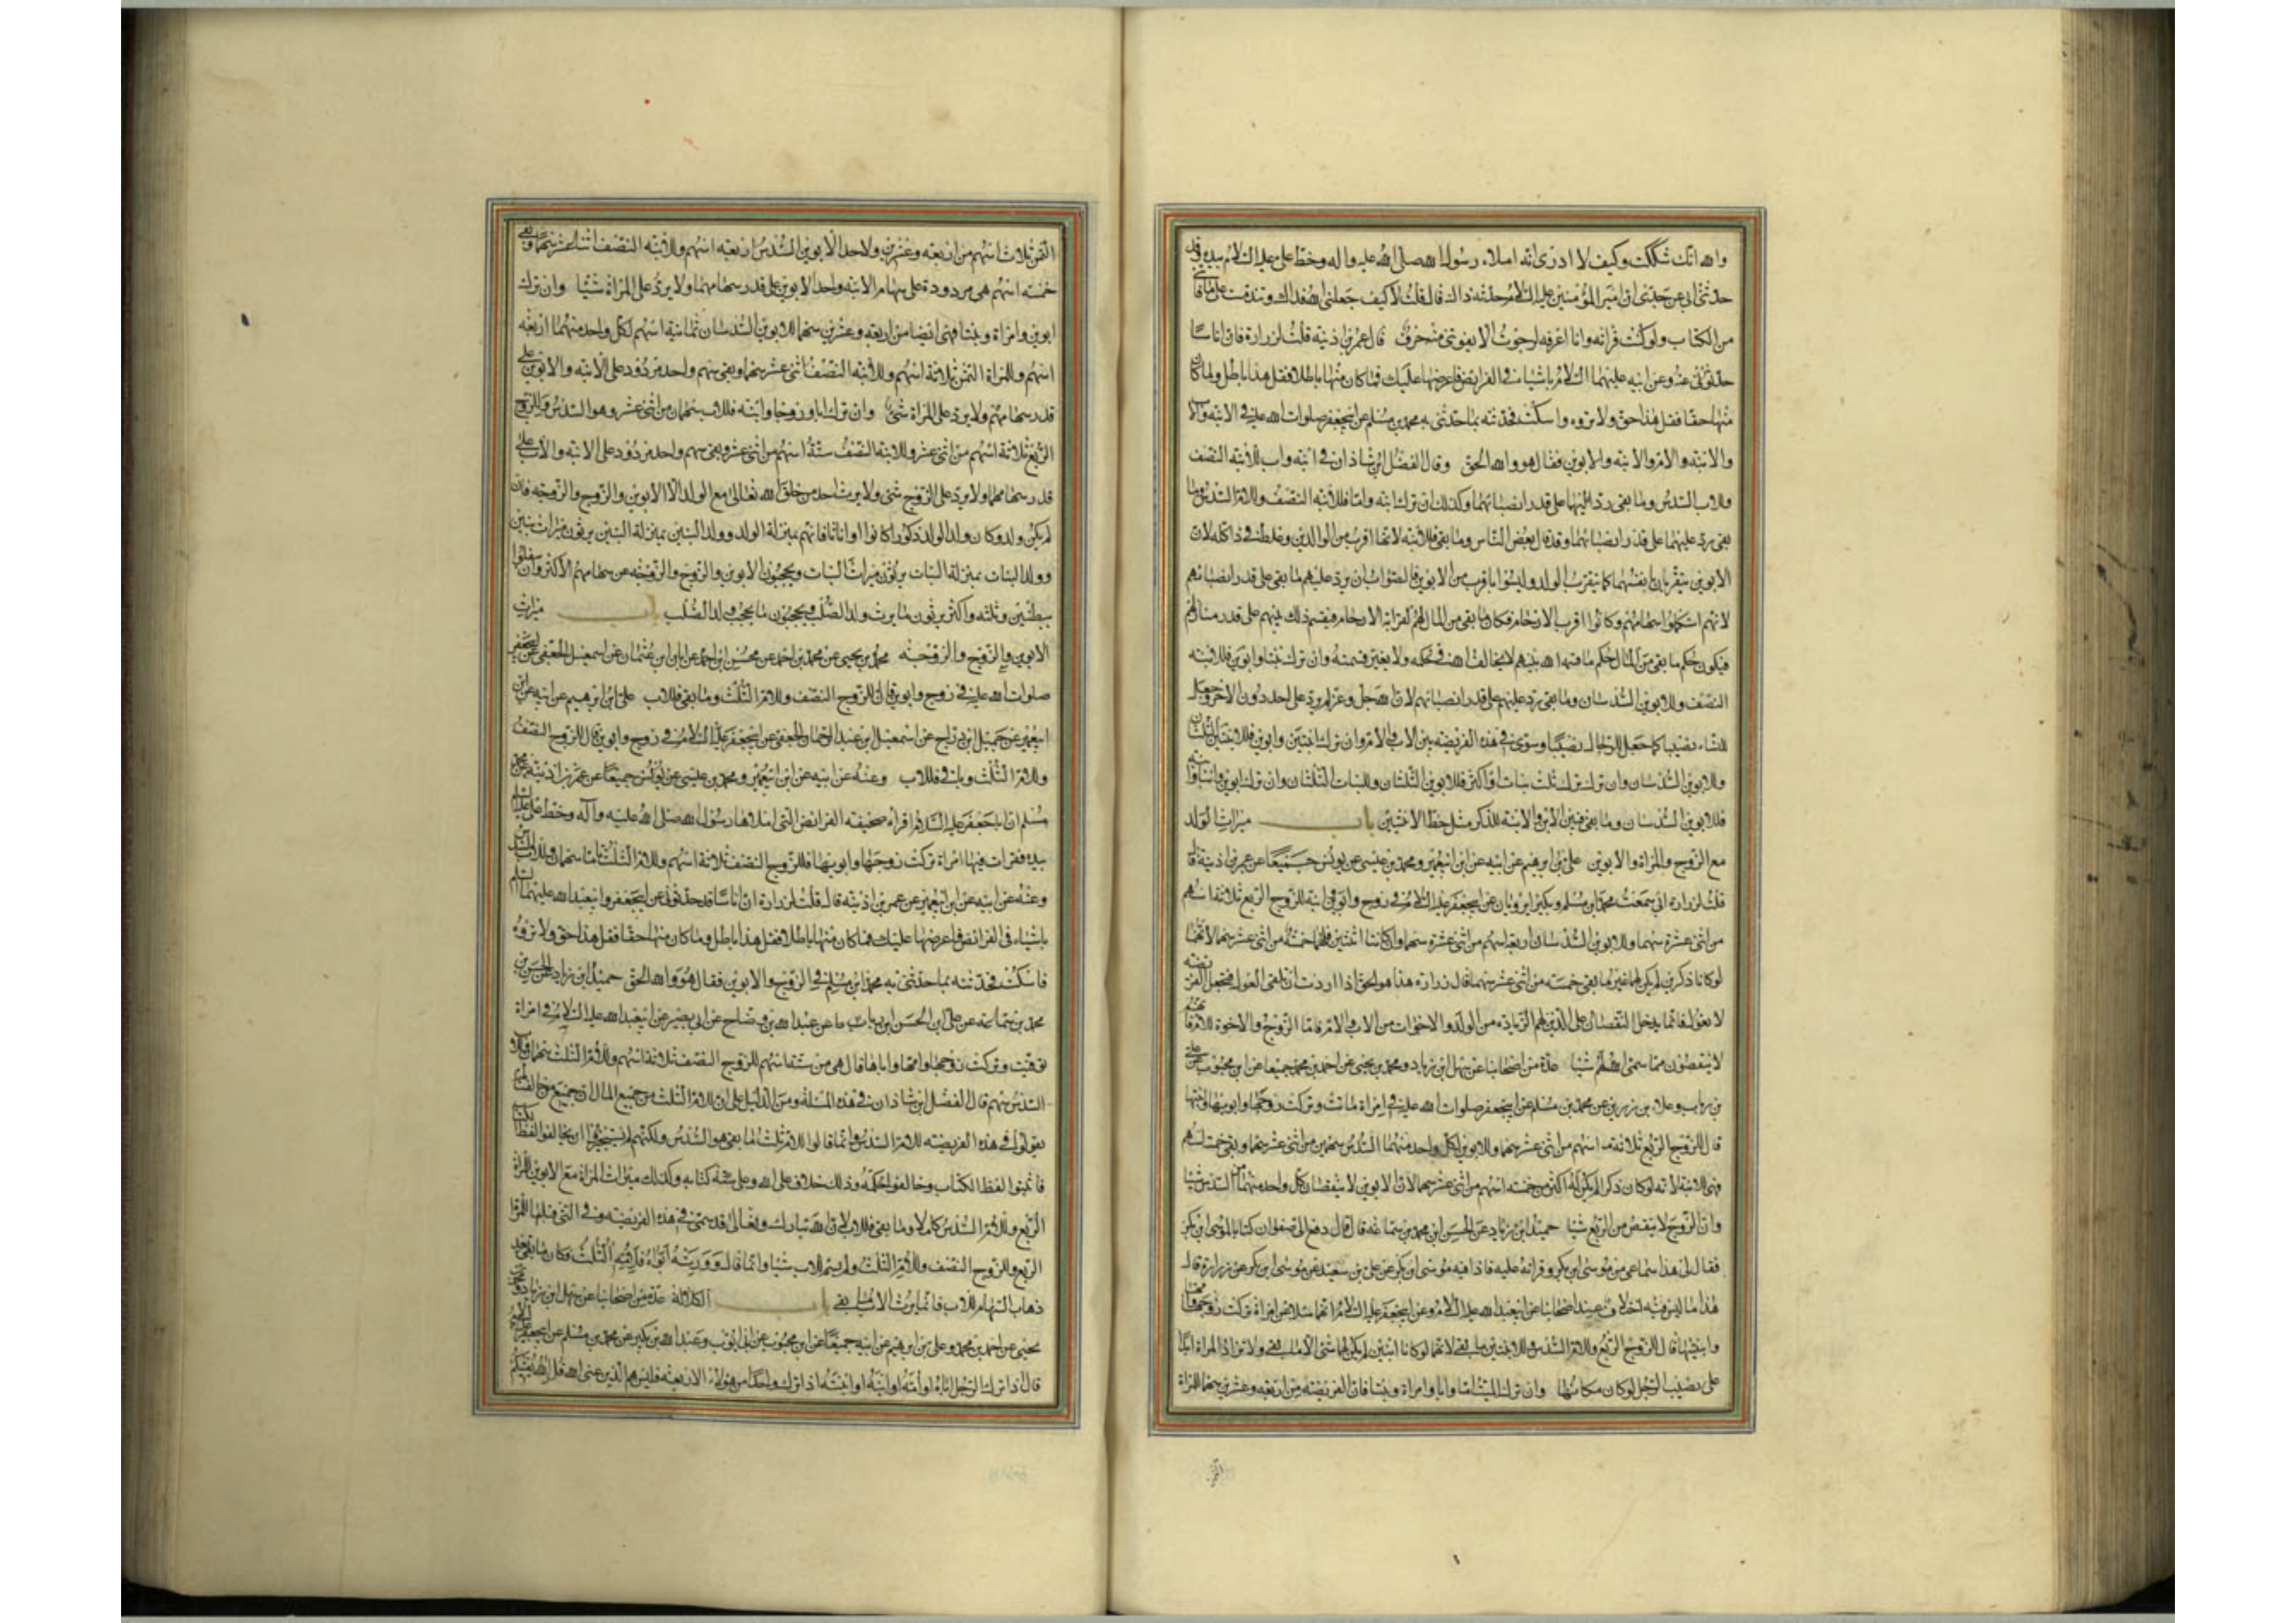 والله انك شككت وكيف لا ادرى انه املاء رسول الله صلى الله عليه واله وخط على عليه السلام بيده وقد
حدثنى ابى عن جدى ان امير المؤمنين عليه السلام حدثه ذاك قال قلت لا كيف جعلنى الله فداك وتندمت على ما فاتنى
من الكتاب ولو كنت قراته وانا اعرفه لرجوت الا يفوتنى منه حرف قال عمر بن اذنيه قلت لزرارة فان اناسا
حدثونى عنه وعن ابيه عليهما السلام باشياء فى الفرايض فاعرضها عليك فما كان منها باطلا فقل هذا باطل وما كان
منها حقا فقل هذا حق ولا تروه واسكت فحدثته بما حدثنى به محمد بن مسلم عن ابيجعفر صلوات الله عليه فى الابنه والاب
والابنه والام والابنه والابوين فقال هو والله الحق وقال الفضل ابن شاذان فى ابنه واب للابنه النصف
وللاب السدس وما بقى رد اليهما على قدر انصبائهما وكذلك ان ترك ابنه واما فللابنه النصف وللام السدس وما
بقى يرد عليهما على قدر انصبائهما وقد قال بعض الناس وما بقى فللابنه لانها اقرب من الوالدين وغلط فى ذا كله لان
الابوين يتقربان بانفسهما كما يتقرب الولد وليسوا باقرب من الابوين فالصواب ان يرد عليهم ما بقى على قدر انصبائهم
لانهم استكملوا سهامهم وكانوا اقرب الارحام فكان ما بقى من المال لهم لقرابة الارحام فيقسم ذلك بينهم على قدر منازلهم
فيكون حكم ما بقى من المال حكم ما قسمه الله بينهم لا يخالف الله فى حكمه ولا يغير قسمته وان ترك بنتا وابوين فللابنه
النصف وللابوين السدسان وما بقى يرد عليهم على قدر انصبائهم لان الله جل وعز لم يرد على احد دون الاخر وجعل
للنساء نصيبا كما جعل للرجال نصيبا وسوى فى هذه الفريضه بين الاب والام وان ترك ابنتين وابوين فللابنتين الثلثان
وللابوين السدسان وان ترك ثلث بنات او اكثر فللابوين الثلثان وللبنات الثلثان وان ترك ابوين وابنا وابنة
فللابوين السدسان وما بقى فبين الابن والابنه للذكر مثل حظ الانثيين باب ميراث الولد
مع الزوج والمراة والابوين على بن ابرهيم عن ابيه عن ابن ابيعمير ومحمد بن عيسى عن يونس جميعا عن عمر بن اذينة قال
قلت لزرارة انى سمعت محمد بن مسلم وبكيرا يرويان عن ابيجعفر عليه السلام فى زوج وابوين وابنة للزوج الربع ثلاثة اسهم
من اثنى عشرة سهما وللابوين السدسان اربعة اسهم من اثنى عشرة سهما وان كانتا اثنتين فلهما خمسة من اثنى عشر سهما لانهما
لو كانا ذكرين لم يكن لهما غير ما بقى خمسه من اثنى عشر سهما قال زرارة هذا هو الحق اذا اردت ان تلقى العول فتجعل الفريضه
لا تعول فانما يدخل النقصان على الذين لهم الزيادة من الولد والاخوات من الاب والام فاما الزوج والاخوة للام فانهم
لا ينقصون مما سمى الله لهم شيئا عدة من اصحابنا عن سهل ابن زياد ومحمد بن يحيى عن احمد بن محمد جميعا عن ابن محبوب عن على
بن رباب وعلاء بن رزين عن محمد بن مسلم عن ابيجعفر صلوات الله عليه فى امراة ماتت وتركت زوجها وابويها وابنتها
قال للزوج الربع ثلاثة اسهم من اثنى عشر سهما وللابوين لكل واحد منهما السدس سهمين من اثنى عشر سهما وبقى خمسة اسهم
فهى للابنة لانه لو كان ذكرا لم يكن له اكثر من خمسه اسهم من اثنى عشر سهما لان الابوين لا ينقصان كل واحد منهما من السدس شيئا
وان الزوج لا ينقص من الربع شيئا حميد ابن زياد عن الحسن ابن محمد بن سماعه قال قال دفع الى صفوان كتابا لموسى ابن بكر
فقال لى هذا سماعى من موسى ابن بكر وقراته عليه فاذا فيه موسى ابن بكر عن على بن سعيد عن موسى ابن بكر عن زرارة قال
هذا ما ليس فيه اختلاف عند اصحابنا عن ابيعبد الله عليه السلام وعن ابيجعفر عليه السلام انهما سئلا عن امراة تركت زوجها وامها
وابنتيها قال للزوج الربع وللام السدس وللابنتين ما بقى لانهما لو كانا ابنين لم يكن لهما شئ الا ما بقى ولا تزاد المراة ابدا
على نصيب الرجل لو كان مكانها وان ترك الميت اما وابا وامراة وبنتا فان الفريضه من اربعه وعشرين سهما للمراة
الثمن
الثمن ثلاث اسهم من اربعه وعشرين ولاحد الابوين السدس اربعه اسهم وللابنه النصف اثنا عشر سهما وبقى
خمسه اسهم هى مردودة على سهام الابنه واحد الابوين على قدر سهامهما ولا يرد على المراة شيئا وان ترك
ابوين وامراة وبنتا فهى ايضا من اربعه وعشرين سهما للابوين السدسان ثمانية اسهم لكل واحد منهما اربعه
اسهم وللمراة الثمن ثلاثة اسهم وللابنه النصف اثنى عشر سهما وبقى سهم واحد مردود على الابنه والابوين على
قدر سهامهم ولا يرد على المراة شئ وان ترك ابا وزوجا وابنه فللاب سهمان من اثنى عشر وهو السدس وللزوج
الربع ثلاثة اسهم من اثنى عشر وللابنة النصف ستة اسهم من اثنى عشر وبقى سهم واحد مردود على الابنه والاب على
قدر سهامهما ولا يرد على الزوج شئ ولا يرث احد من خلق الله تعالى مع الولد الا الابوين والزوج والزوجه فان
لم يكن ولد وكان ولد الولد ذكورا كانوا او اناثا فانهم بمنزلة الولد وولد البنين بمنزلة البنين يرثون ميراث بنين
وولد البنات بمنزلة البنات يرثون ميراث البنات ويحجبون الابوين والزوج والزوجه عن سهامهم الاكثر وان سفلوا
ببطنين وثلثه واكثر يرثون ما يرث ولد الصلب ويحجبون ما يحجب ولد الصلب باب ميراث
الابوين والزوج والزوجه محمد بن يحيى عن محمد بن احمد عن محسن ابن احمد عن ابان ابن عثمان عن اسمعيل الجعفى عن ابيجعفر
صلوات الله عليه فى زوج وابوين قال للزوج النصف وللام الثلث وما بقى فللاب على ابن ابرهيم عن ابيه عن ابن
ابيعمير عن جميل ابن دراج عن اسمعيل ابن عبد الرحمان الجعفى عن ابيجعفر عليه السلام فى زوج وابوين قال للزوج النصف
وللام الثلث وما بقى فللاب وعنه عن ابيه عن ابن ابيعمير ومحمد بن عيسى عن يونس جميعا عن عمر بن اذينه عن محمد
مسلم ان ابا جعفر عليه السلام اقراه صحيفه الفرائض التى املاها رسول الله صلى الله عليه وآله وخط على عليه السلام
بيده فقرات فيها امراة تركت زوجها وابويها فللزوج النصف ثلاثة اسهم وللام الثلث تاما سهمان وللاب السدس
وعنه عن ابيه عن ابن ابيعمير عن عمر بن اذنيه قال قلت لزرارة ان اناسا قد حدثونى عن ابيجعفر وابيعبد الله عليهما السلم
باشياء فى الفرائض فاعرضها عليك فما كان منها باطلا فقل هذا باطل وما كان منها حقا فقل هذا حق ولا تروه
فاسكت فحدثته بما حدثنى به محمد ابن مسلم فى الزوج والابوين فقال هو والله الحق حميد ابن زياد عن الحسن بن
محمد بن سماعه عن على ابن الحسن ابن رباط عن عبد الله بن وضاح عن ابى بصير عن ابيعبد الله عليه السلام فى امراة
توفيت وتركت زوجها وامها واباها قال هى من ستة اسهم للزوج النصف ثلاثة اسهم وللام الثلث سهمان وللاب
السدس سهم قال الفضل ابن شاذان فى هذه المسلة ومن الدليل على ان للام الثلث من جميع المال ان جميع من خالفنا لم
يقولوا فى هذه الفريضه للام السدس وانما قالوا للام ثلث ما بقى هو السدس ولكنهم لم يستجيزوا ان يخالفوا لفظ الكتاب
فاثبتوا لفظ الكتاب وخالفوا حكمه وذلك خلاف على الله وعلى كتابه وكذلك ميراث المراة مع الابوين للمراة
الربع وللام السدس كاملا وما بقى فللاب لان الله تبارك وتعالى قد سمى فى هذه الفريضه وفى التى قبلها للمراة
الربع وللزوج النصف وللام الثلث ولم يسم للاب شيئا وانما قال وورثه ابواه فلامه الثلث وكان ما بقى بعد
ذهاب السهام للاب فانما يرث الاب ما بقى باب الكلالة عدة من اصحابنا عن سهل ابن زياد ومحمد بن
يحيى عن احمد بن محمد وعلى بن ابرهيم عن ابيه جميعا عن ابن محبوب عن ابى ايوب وعبد الله بن بكير عن محمد بن مسلم عن ابيجعفر عليه السلام
قال اذا ترك الرجل اباه او امه او ابنه او ابنته اذا ترك واحدا من هؤلاء الاربعه فليس هم الذين عنى الله قل الله يفتيكم